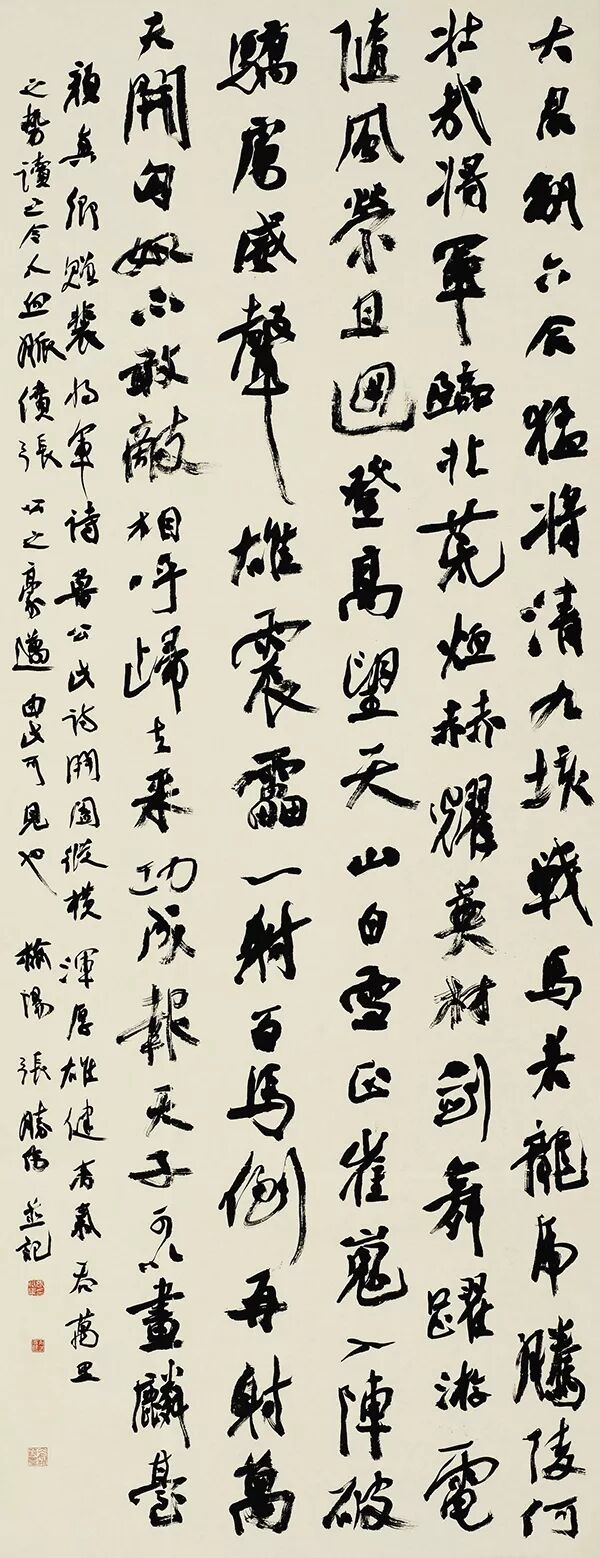 大君制六合猛將清九垓戰馬若龍虎騰陵何
壯哉將軍臨北荒烜赫耀英材劍舞躍游電
隨風縈且迴登高望天山白雪正崔嵬入陣破
驕虜威聲雄震雷一射百馬倒再射萬
夫開匈奴不敢敵相呼歸去來功成報天子可以畫麟臺
顏真卿贈裴將軍詩魯公此詩開闔縱橫渾厚雄健有氣吞萬里
之勢讀之令人血脈僨張公之豪邁由此可見也 榆陽 張勝偉並記